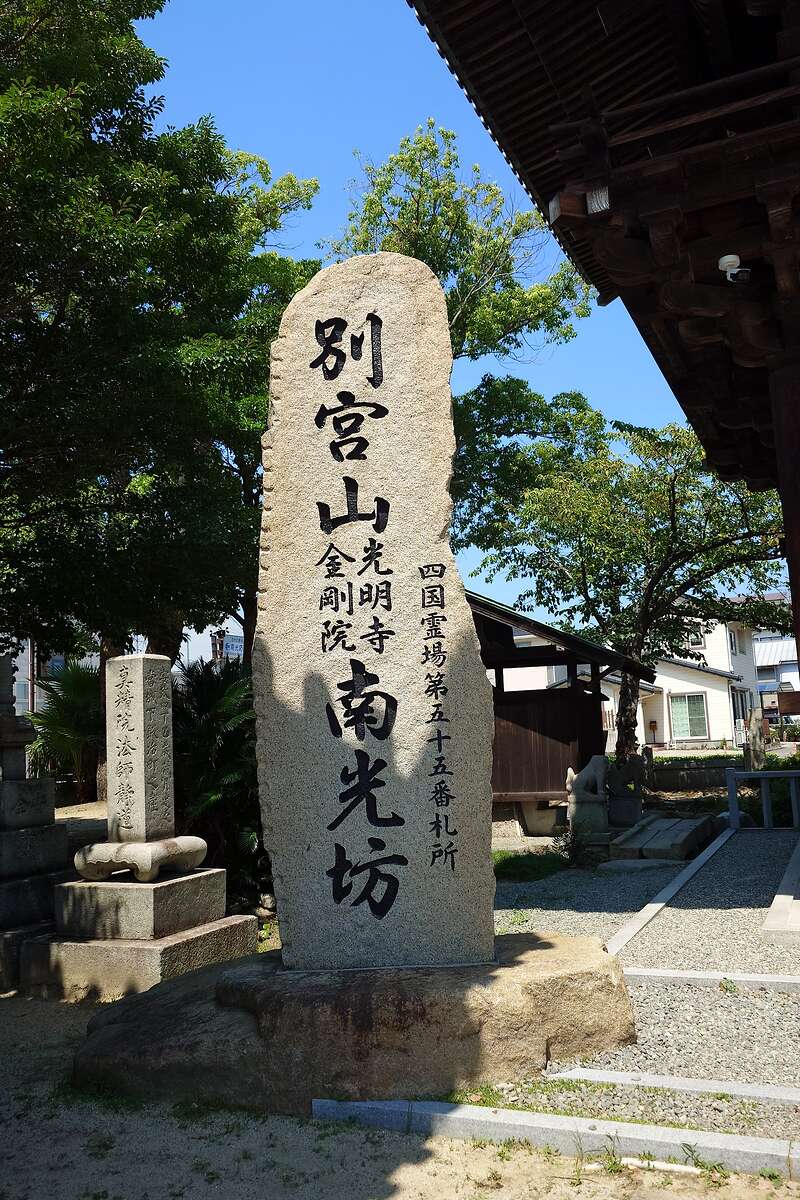 四国霊場第五十五番札所
別宮山
光明寺
金剛院
南光坊